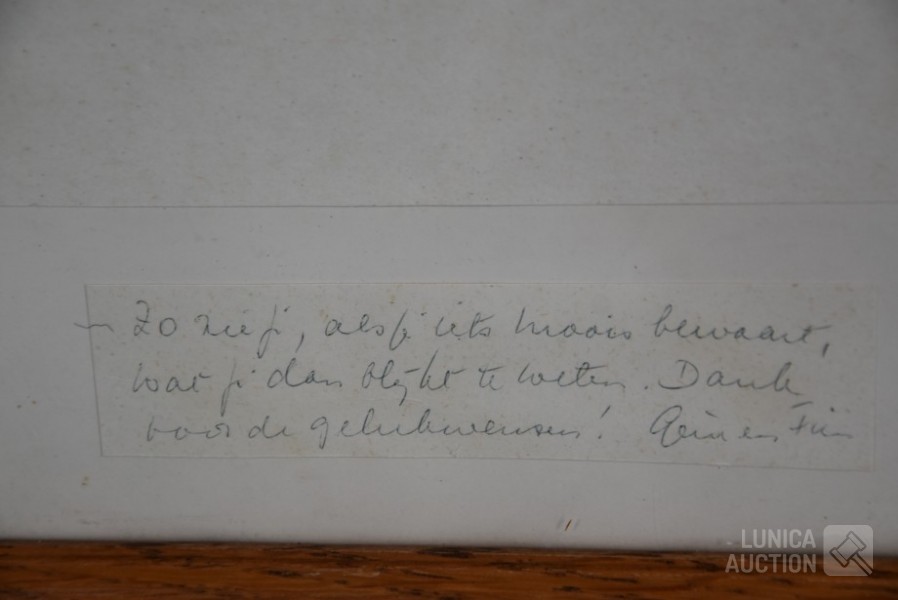 Zo zie ji, als ji iets moois bewaart,
wat ji dan blijkt te weten. Dank
voor de gelukwensen! en
LUNICA
AUCTION